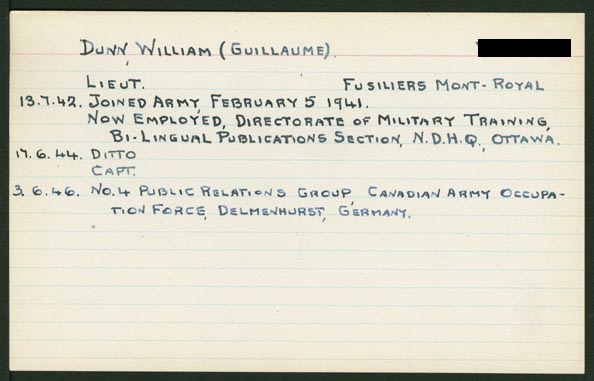 DUNN, WILLIAM (GUILLAUME).
LIEUT. FUSILIERS MONT-ROYAL
13.7.42. JOINED ARMY, FEBRUARY 5 1941.
NOW EMPLOYED, DIRECTORATE OF MILITARY TRAINING,
BI-LINGUAL PUBLICATIONS SECTION, N.D.H.Q., OTTAWA.
17.6.44. DITTO
CAPT.
3.6.46. NO.4 PUBLIC RELATIONS GROUP, CANADIAN ARMY OCCUPA-
TION FORCE, DELMENHURST, GERMANY.